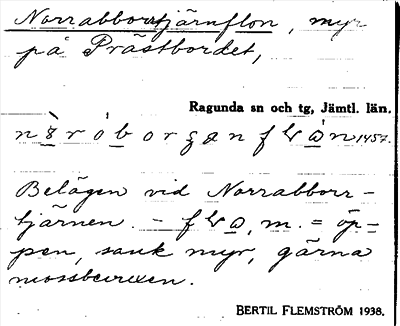 Norrabborrtjärnflon, myr
på Prästbordet,
Ragunda sn och tg, Jämtl. län.
1457.
Belägen vid Norrabborr-
tjärnen. - m. = öp-
pen, sank myr, gärna
mossbevuxen.
BERTIL FLEMSTRÖM 1938.